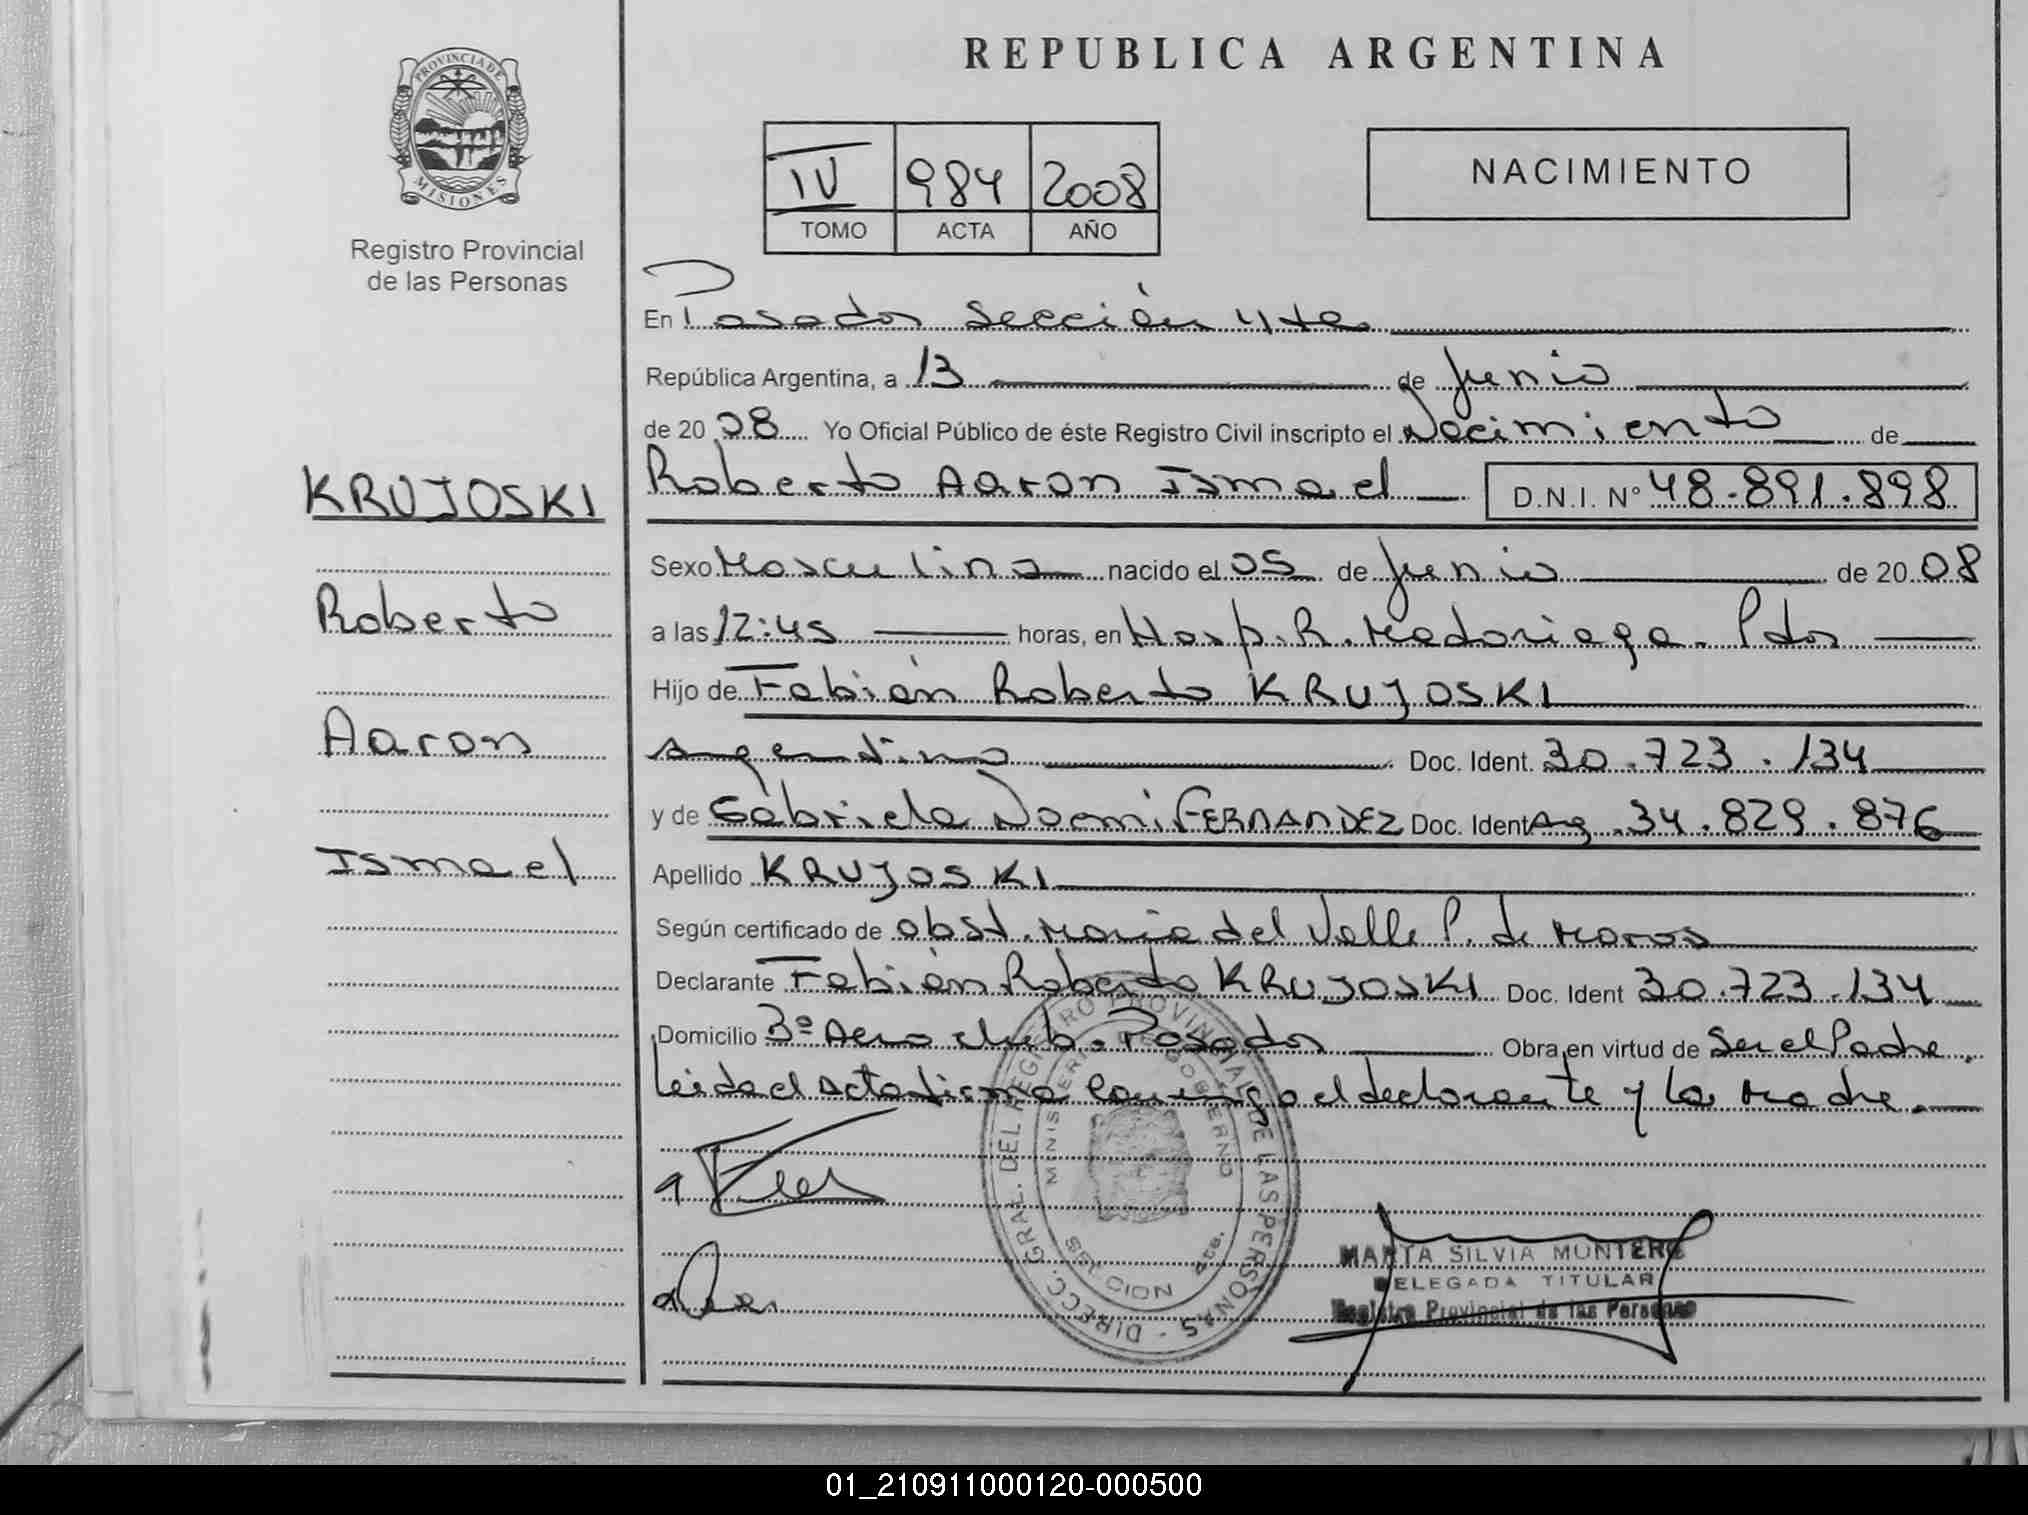 REPUBLICA ARGENTINA
PROVINCIA DE
MISIONES
Registro Provincial
de las Personas
IV 984 2008
TOMO ACTA AÑO
NACIMIENTO
En Posadas Sección 4ta
República Argentina, a 13 de Junio
de 2008 Yo Oficial Público de éste Registro Civil inscripto el Nacimiento de
KRUJOSKI
Roberto
Aaron
Ismael
Roberto Aaron Ismael D.N.I. N° 48.891.898
Sexo Masculino nacido el 05 de Junio de 2008
a las 12:45 horas, en Hosp. R. Madariaga. Pdas
Hijo de Fabián Roberto KRUJOSKI
Argentino Doc. Ident. 30.723.134
y de Gabriela Noemi FERNANDEZ Doc. Ident Arg. 34.829.876
Apellido KRUJOSKI
Según certificado de obst. María del Valle P. de Maros
Declarante Fabián Roberto KRUJOSKI Doc. Ident 30.723.134
Domicilio Bº Aero club. Posadas Obra en virtud de Ser el Padre.
Leida el Acta firma conmigo el declarante y la Madre.
DIRECC. GRAL. DEL REGISTRO PROVINCIAL DE LAS PERSONAS
MINISTERIO DE GOBIERNO
SECCION 4ta.
MARTA SILVIA MONTERO
DELEGADA TITULAR
Registro Provincial de las Personas
01_210911000120-000500